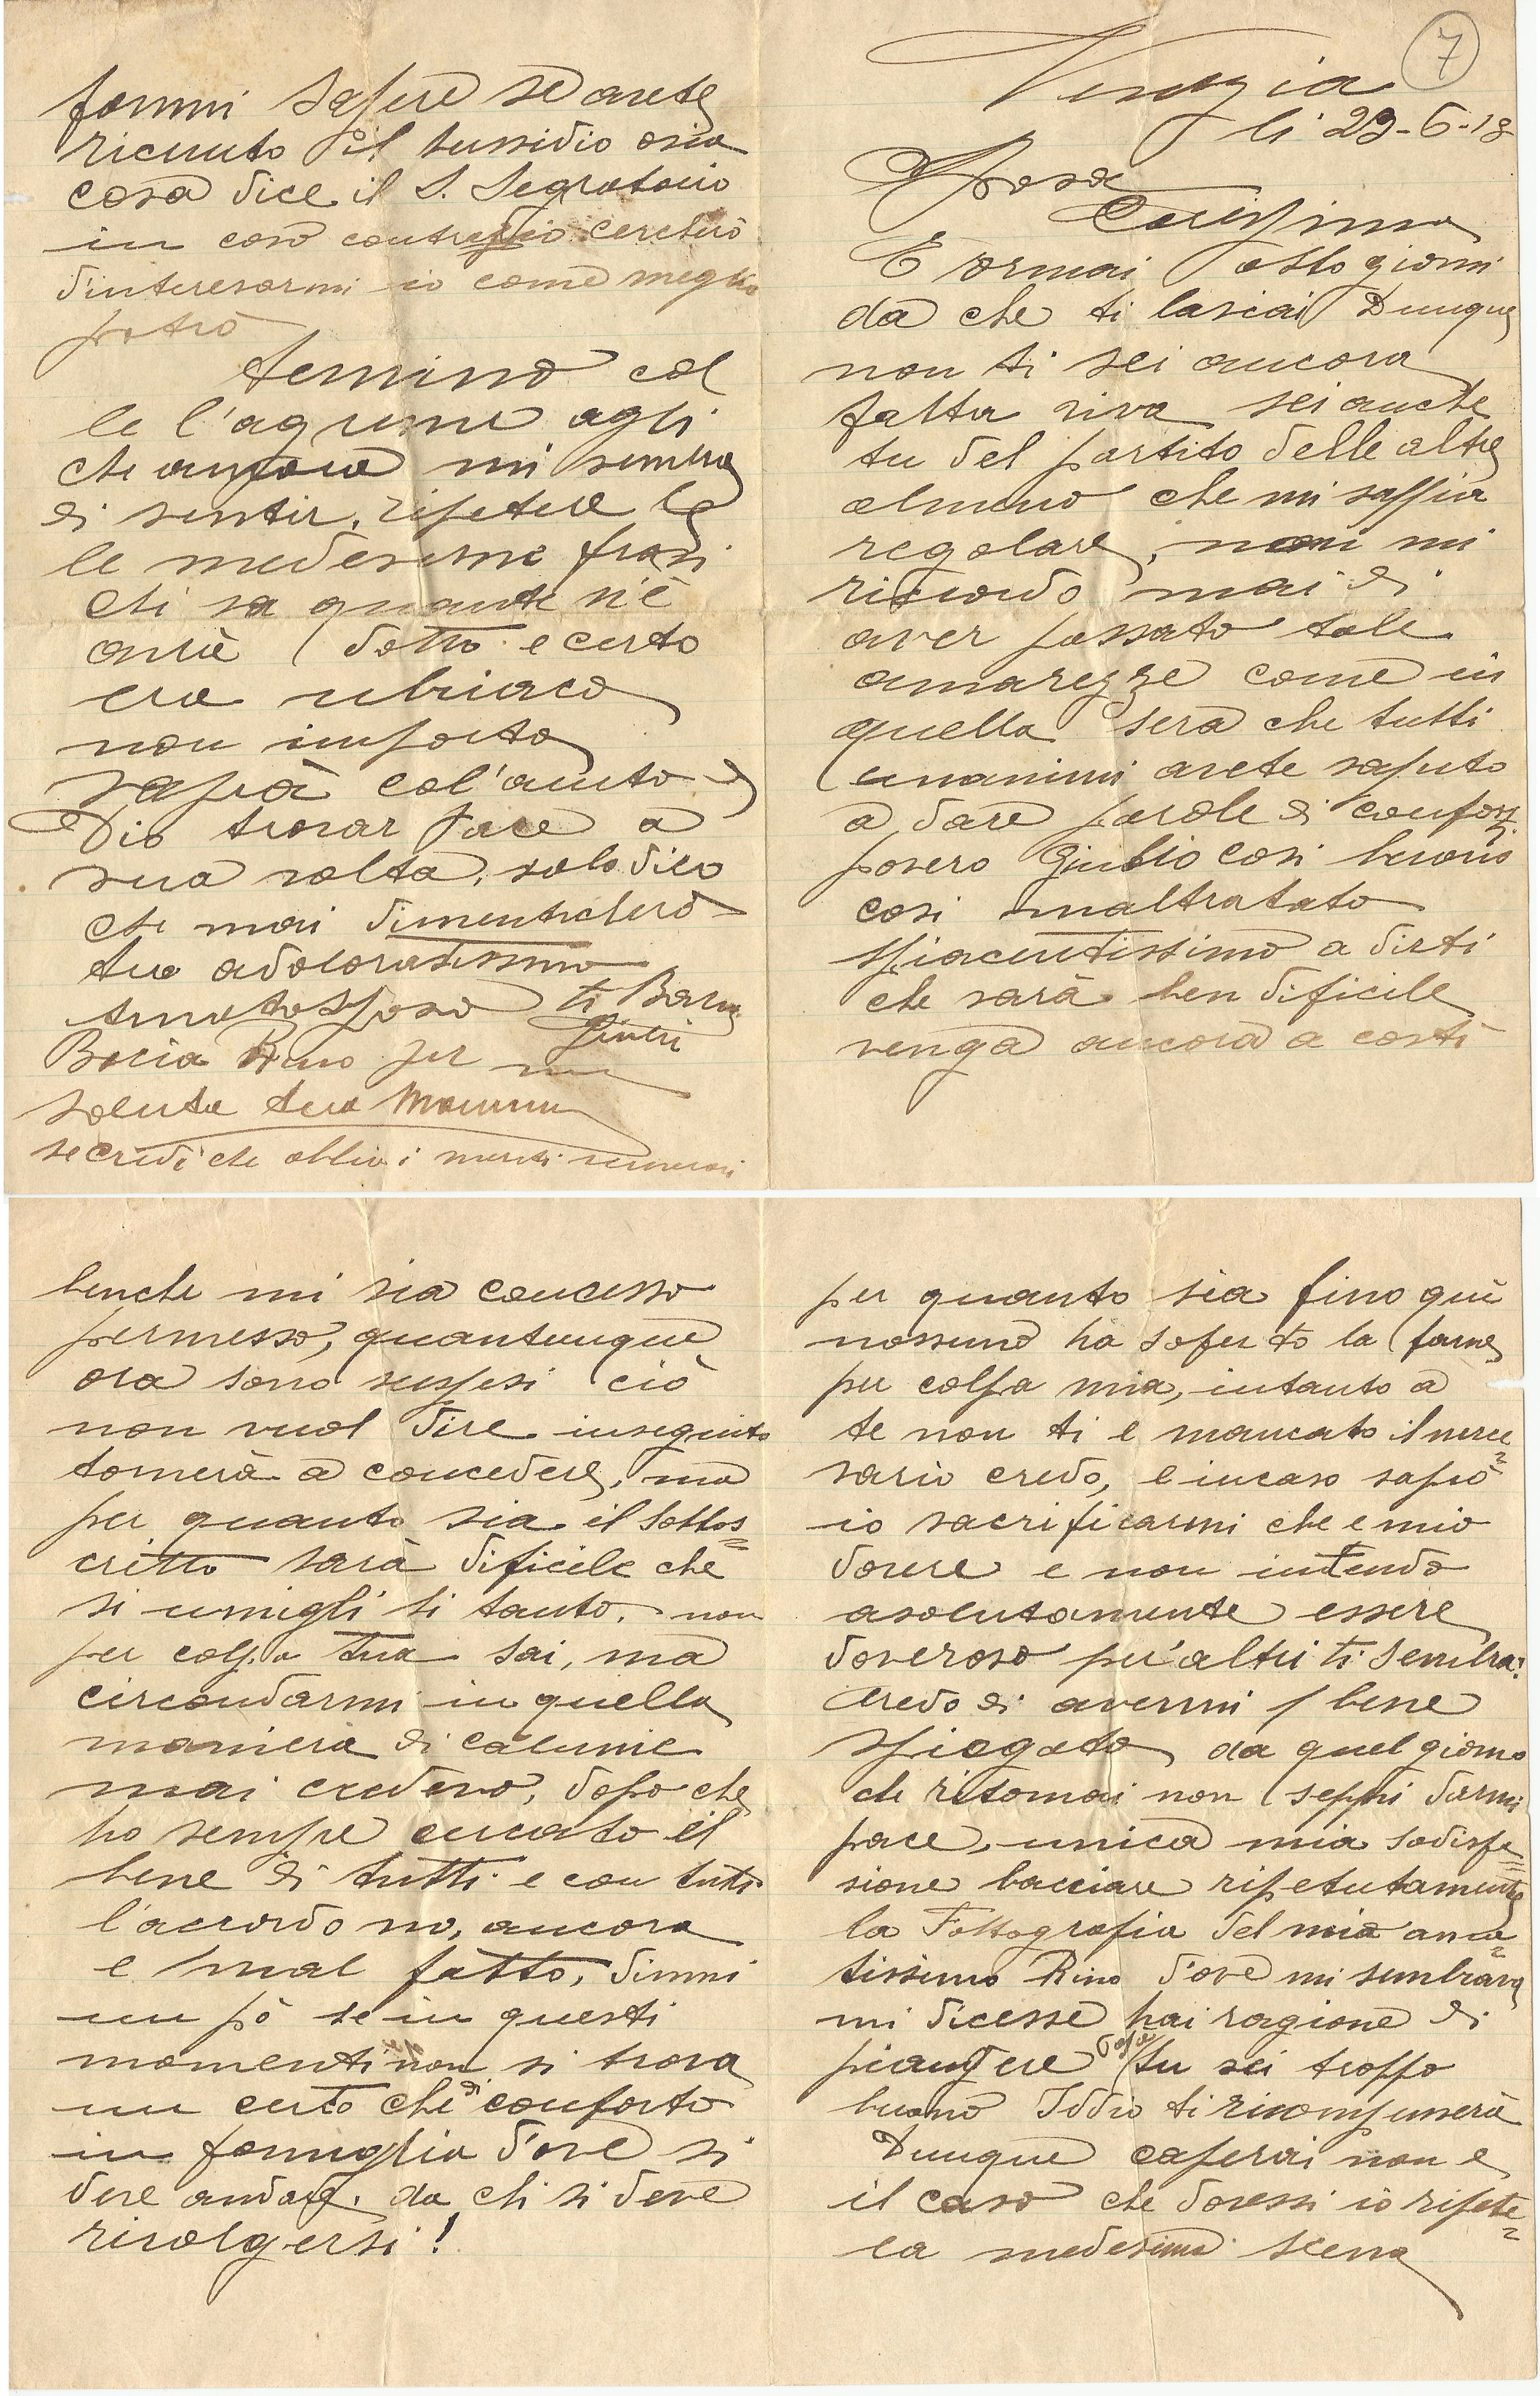 7
Venezia
li 29-6-18
Sposa
Carissima
E ormai otto giorni
da che ti lasciai Dunque
non ti sei ancora
fatta viva sei anche
tu del partito delle altre
almeno che mi sappia
regolare, non mi
ricordo mai di
aver passato tale
amarezze come in
quella sera che tutti
unanimi avete saputo
a dare parole di conforto
povero Giulio cosi buono
cosi maltratato
spiacentissimo a dirti
che sarà ben dificile
venga ancora a costì
benche mi sia concesso
permesso, quantunque
ora sono suspesi ciò
non vuol dire inseguito
tornerà a concedere, ma
per quanto sia il Sottos=
critto sarà dificile che
si umigli si tanto. non
per colpa tua sai, ma
circondarmi in quella
maniera di calunie
mai credevo, dopo che
ho sempre cercato il
bene di tutti e con tutti
l'accordo no, ancora
e mal fatto, dimmi
un pò se in questi
momenti non si trova
un certo che di conforto
in famiglia d'ove si
deve andare. da chi si deve
rivolgersi!
per quanto sia fino quì
nossuno ha soferto la fame
per colpa mia, intanto a
te non ti e mancato il neces=
sario credo, e incaso saprò
io sacrificarmi che e mio
dovere e non intendo
asolutamente essere
doveroso per altri ti sembra?
Credo di avermi bene
spiegato da quel giorno
che ritornai non seppi darmi
pace, unica mia sodisfa=
sione bacciare ripetutamente
la Fottografia del mio ama=
tissimo Rino d'ove mi sembrava
mi dicesse hai ragione di
piangere Papà tu sei troppo
buono Iddio ti ricompenserà
Dunque caperai non e
il caso che dovessi io ripete=
la medesima scena
fammi sapere se avete
ricevuto il sussidio osia
cosa dice il S. Segratario
in caso contraglio cercherò
d'interesarmi io come meglio
potrò
termino col
le l'agrime agli
che ancora mi sembra
di sentir, ripetere le
le medesime frasi
chi sa quante n'è
avrà detto e certo
era ubriaco
non importa
saprà col'aiuto di
Dio trovar pace a
sua volta, solo dico
che mai dimenticherò
tuo adoloratissimo
Amato Sposo ti Bacia
Giulio
Bacia Rino per me
saluta tua Mamma
se credi che abbia i meriti numerosi